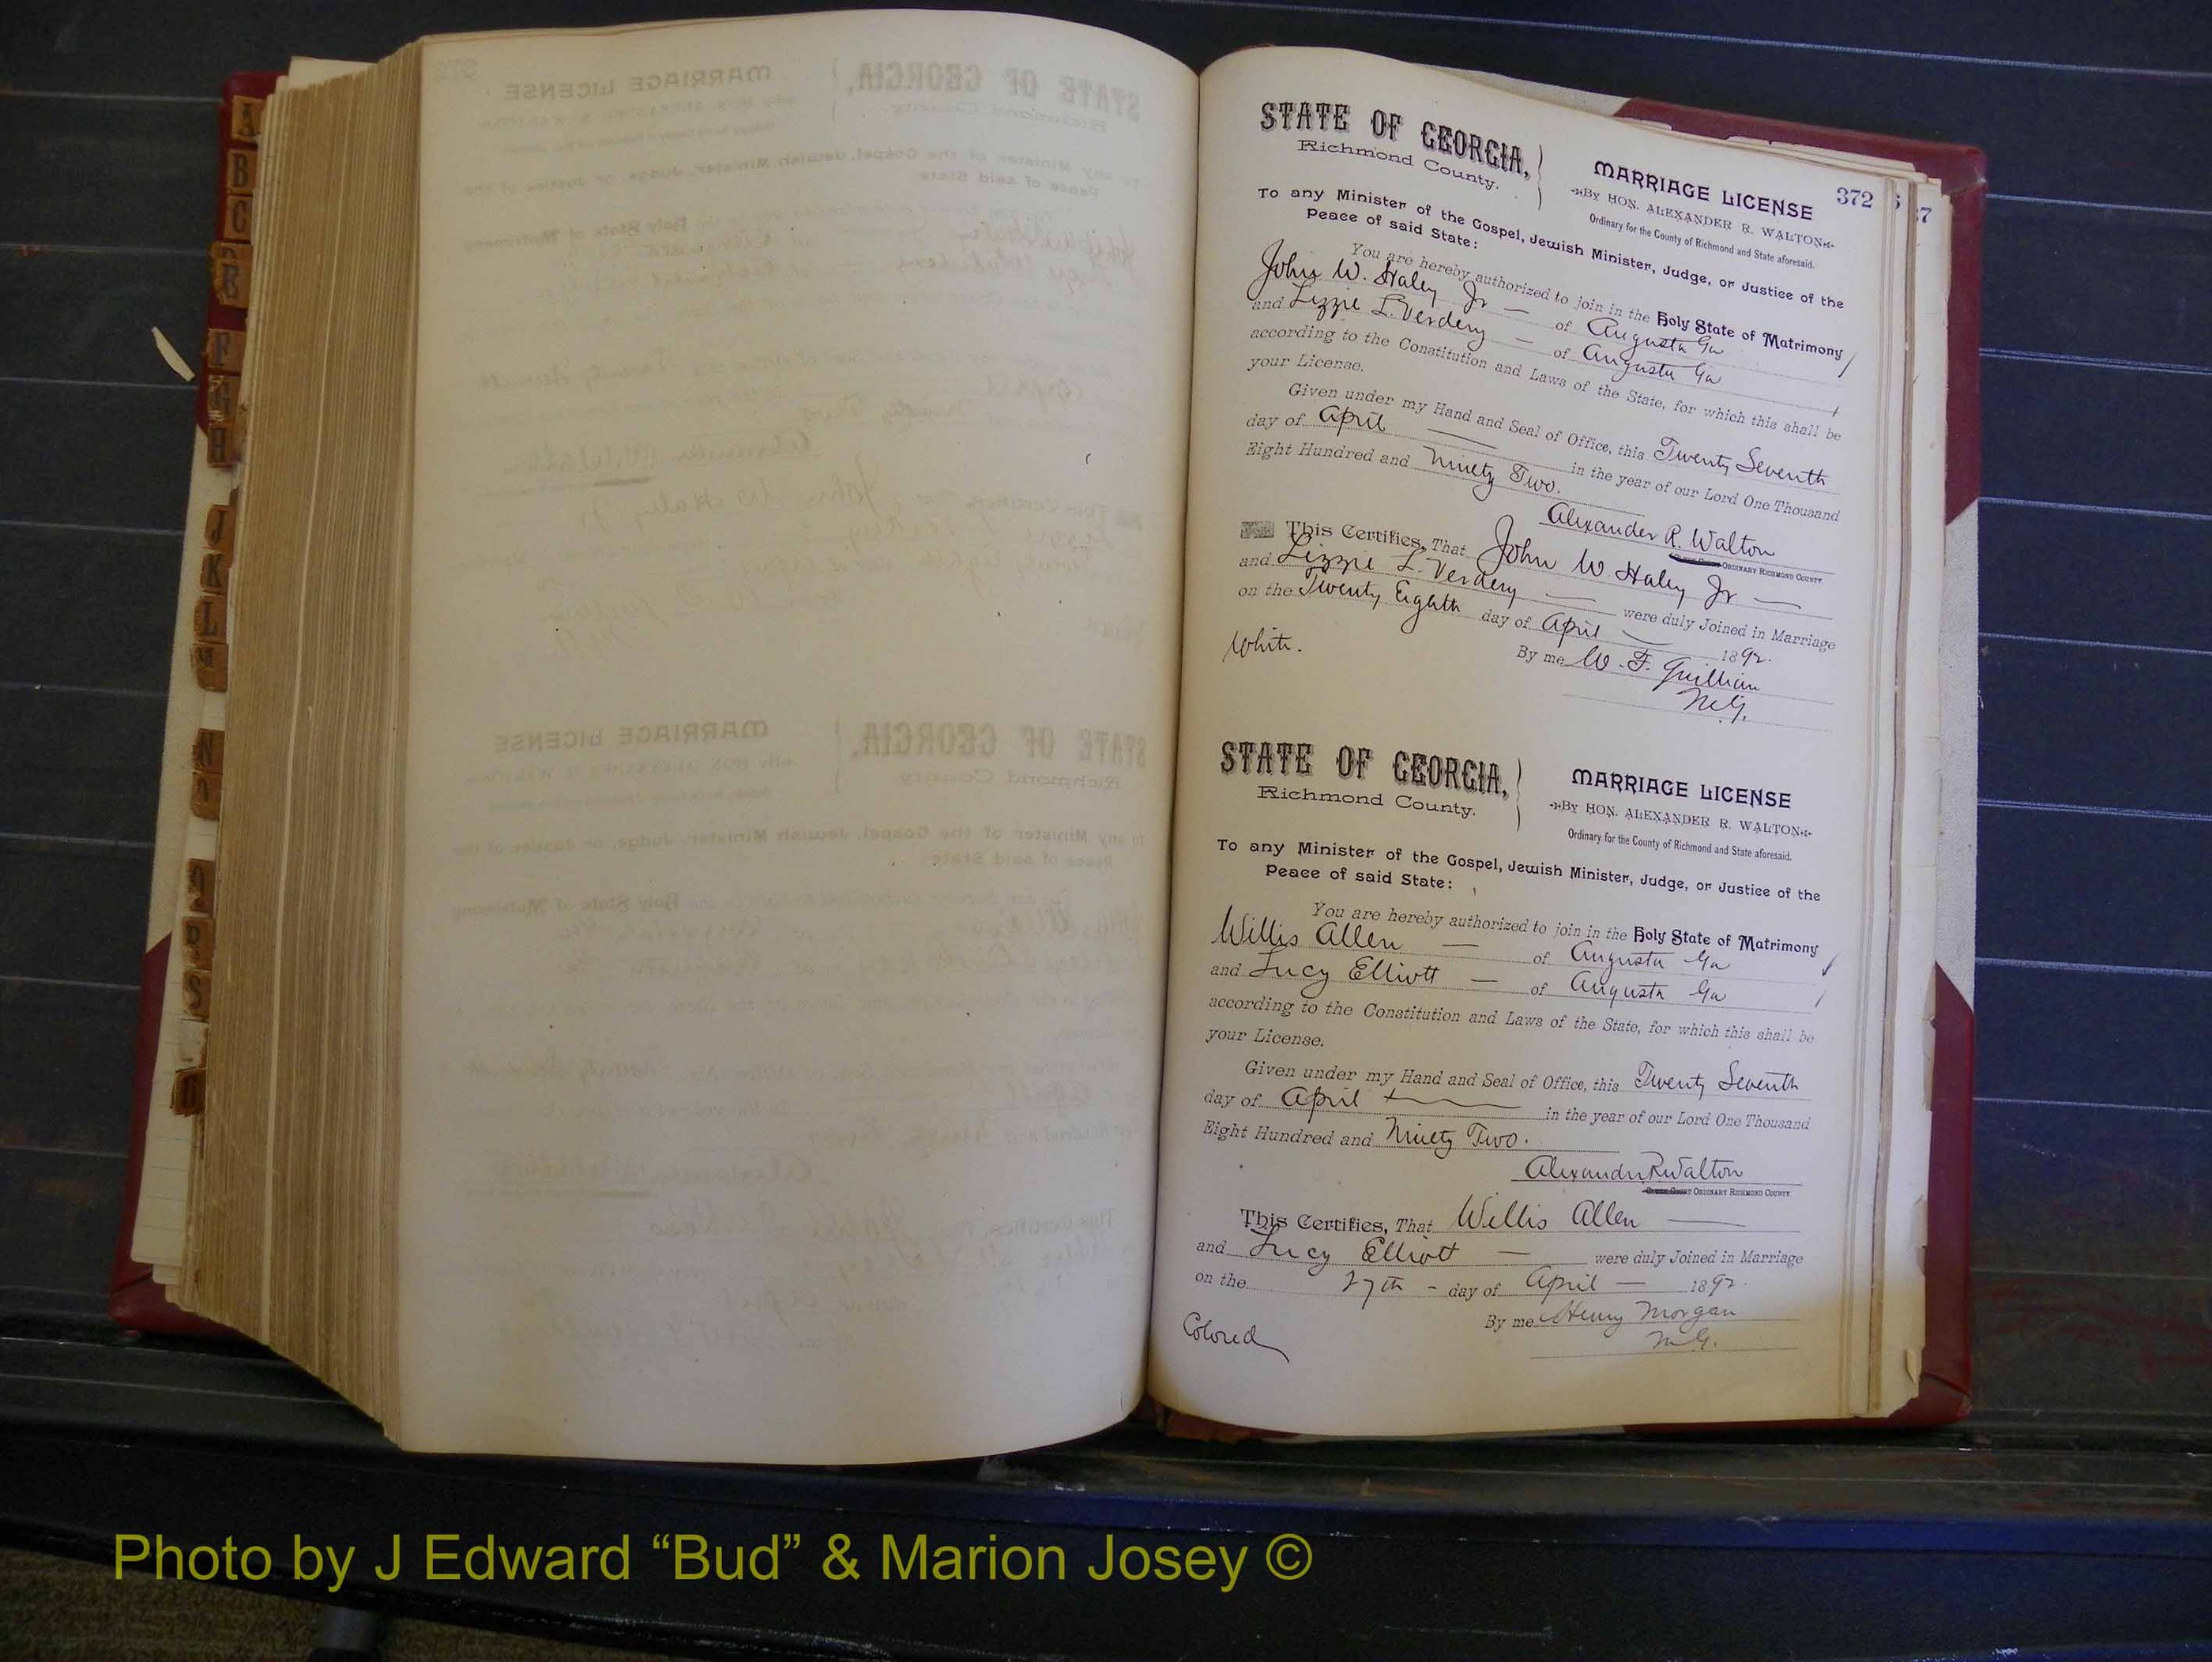 A
B
C
E
F
G
H
J
K
L
M
N
O
Q
S
372
STATE OF GEORGIA,
Richmond County.
MARRIAGE LICENSE
By HON. ALEXANDER R. WALTON
Ordinary for the County of Richmond and State aforesaid.
To any Minister of the Gospel, Jewish Minister, Judge, or Justice of the
Peace of said State:
You are hereby authorized to join in the Holy State of Matrimony
John W. Haley Jr — of Augusta Ga
and Lizzie L. Verdery — of Augusta Ga
according to the Constitution and Laws of the State, for which this shall be
your License.
Given under my Hand and Seal of Office, this Twenty Seventh
day of April in the year of our Lord One Thousand
Eight Hundred and Ninety Two.
Alexander R. Walton
ORDINARY RICHMOND COUNTY
This Certifies, That John W Haley Jr —
and Lizzie L. Verdery — were duly Joined in Marriage
on the Twenty Eighth day of April 1892.
White.
By me W. F. Quillian
M.G.
STATE OF GEORGIA,
Richmond County.
MARRIAGE LICENSE
By HON. ALEXANDER R. WALTON
Ordinary for the County of Richmond and State aforesaid.
To any Minister of the Gospel, Jewish Minister, Judge, or Justice of the
Peace of said State:
You are hereby authorized to join in the Holy State of Matrimony
Willis Allen — of Augusta Ga
and Lucy Elliott — of Augusta Ga
according to the Constitution and Laws of the State, for which this shall be
your License.
Given under my Hand and Seal of Office, this Twenty Seventh
day of April in the year of our Lord One Thousand
Eight Hundred and Ninety Two.
Alexander R Walton
ORDINARY RICHMOND COUNTY
This Certifies, That Willis Allen —
and Lucy Elliott — were duly Joined in Marriage
on the 27th - day of April — 1892.
By me Henry Morgan
M.G.
Colored
Photo by J Edward “Bud” & Marion Josey ©